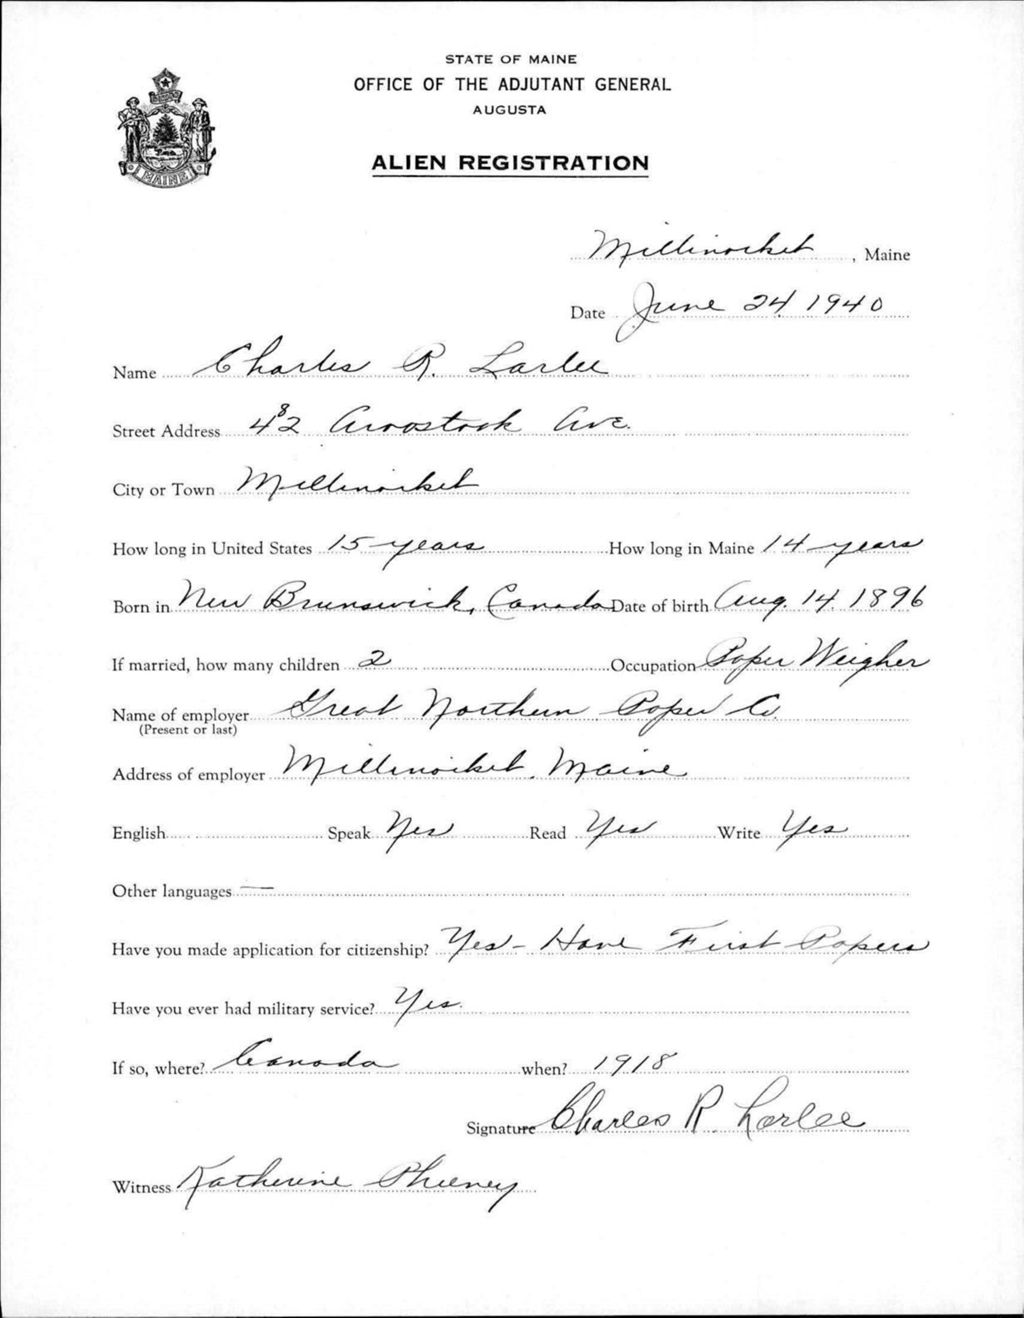 STATE OF MAINE
OFFICE OF THE ADJUTANT GENERAL
AUGUSTA
ALIEN REGISTRATION
MAINE
Millinocket, Maine
Date June 24 1940
Name Charles R. Larlee
Street Address 482 Aroostook Ave.
City or Town Millinocket
How long in United States 15 years How long in Maine 14 years
Born in New Brunswick, Canada Date of birth Aug. 14. 1896
If married, how many children 2 Occupation Paper Weigher
Name of employer Great Northern Paper Co.
(Present or last)
Address of employer Millinocket, Maine
English Speak Yes Read Yes Write Yes
Other languages —
Have you made application for citizenship? Yes - Have First Papers
Have you ever had military service? Yes.
If so, where? Canada when? 1918
Signature Charles R. Larlee
Witness Katherine Pheeney